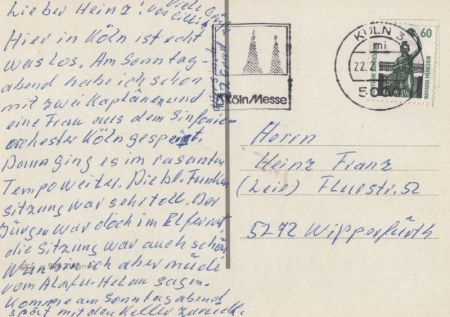 Lieber Heinz!
Hier in Köln ist echt
was los. Am Sonntag-
abend habe ich schon
mit zwei Kaplänen und
eine Frau aus dem Sinfonie-
orchester Köln gespeist.
Dann ging es im rasanten
Tempo weiter. Die bl. Funken
sitzung war sehr toll. Der
Jürgen war doch im Elferrat
die Sitzung war auch schön
bin ich aber müde
vom Alaaf-Helau sagen.
Komme am Sonntagabend
spät mit den Keller zurück.
Viele
KölnMesse
KÖLN 3
mi
22.2.9
5000
60
BAVARIA MÜNCHEN
Herrn
Heinz Franz
(Leie) Flurstr. 52
5272 Wipperfürth